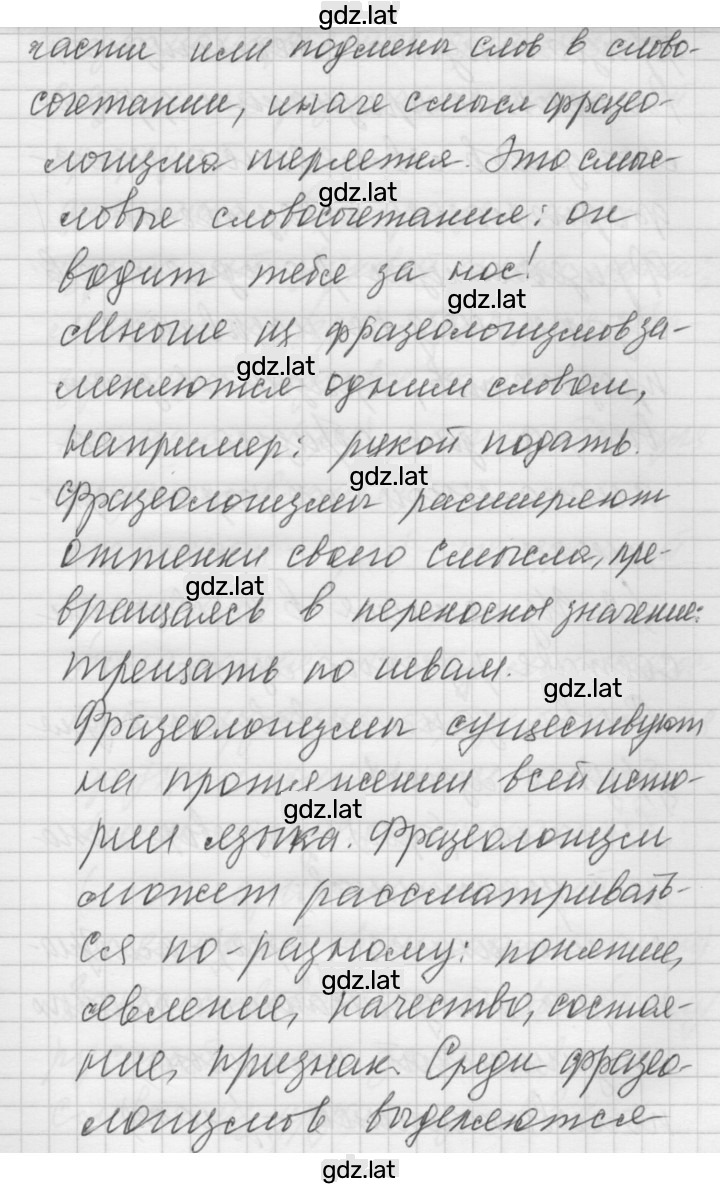 gdz.lat
части или подмены слов в слово-
сочетании, иначе смысл фразео-
логизма теряется. Это смыс-
gdz.lat
ловые словосочетания: он
водит тебя за нос!
gdz.lat
Многие из фразеологизмов за-
gdz.lat
меняются одним словом,
например: рукой подать.
gdz.lat
Фразеологизмы расширяют
оттенки своего смысла, пре-
gdz.lat
вращаясь в переносное значение:
трещать по швам.
gdz.lat
Фразеологизмы существуют
на протяжении всей исто-
gdz.lat
рии языка. Фразеологизм
может рассматривать-
ся по-разному: понятие,
gdz.lat
явление, качество, состоя-
ние, признак. Среди фразео-
логизмов выделяются
gdz.lat